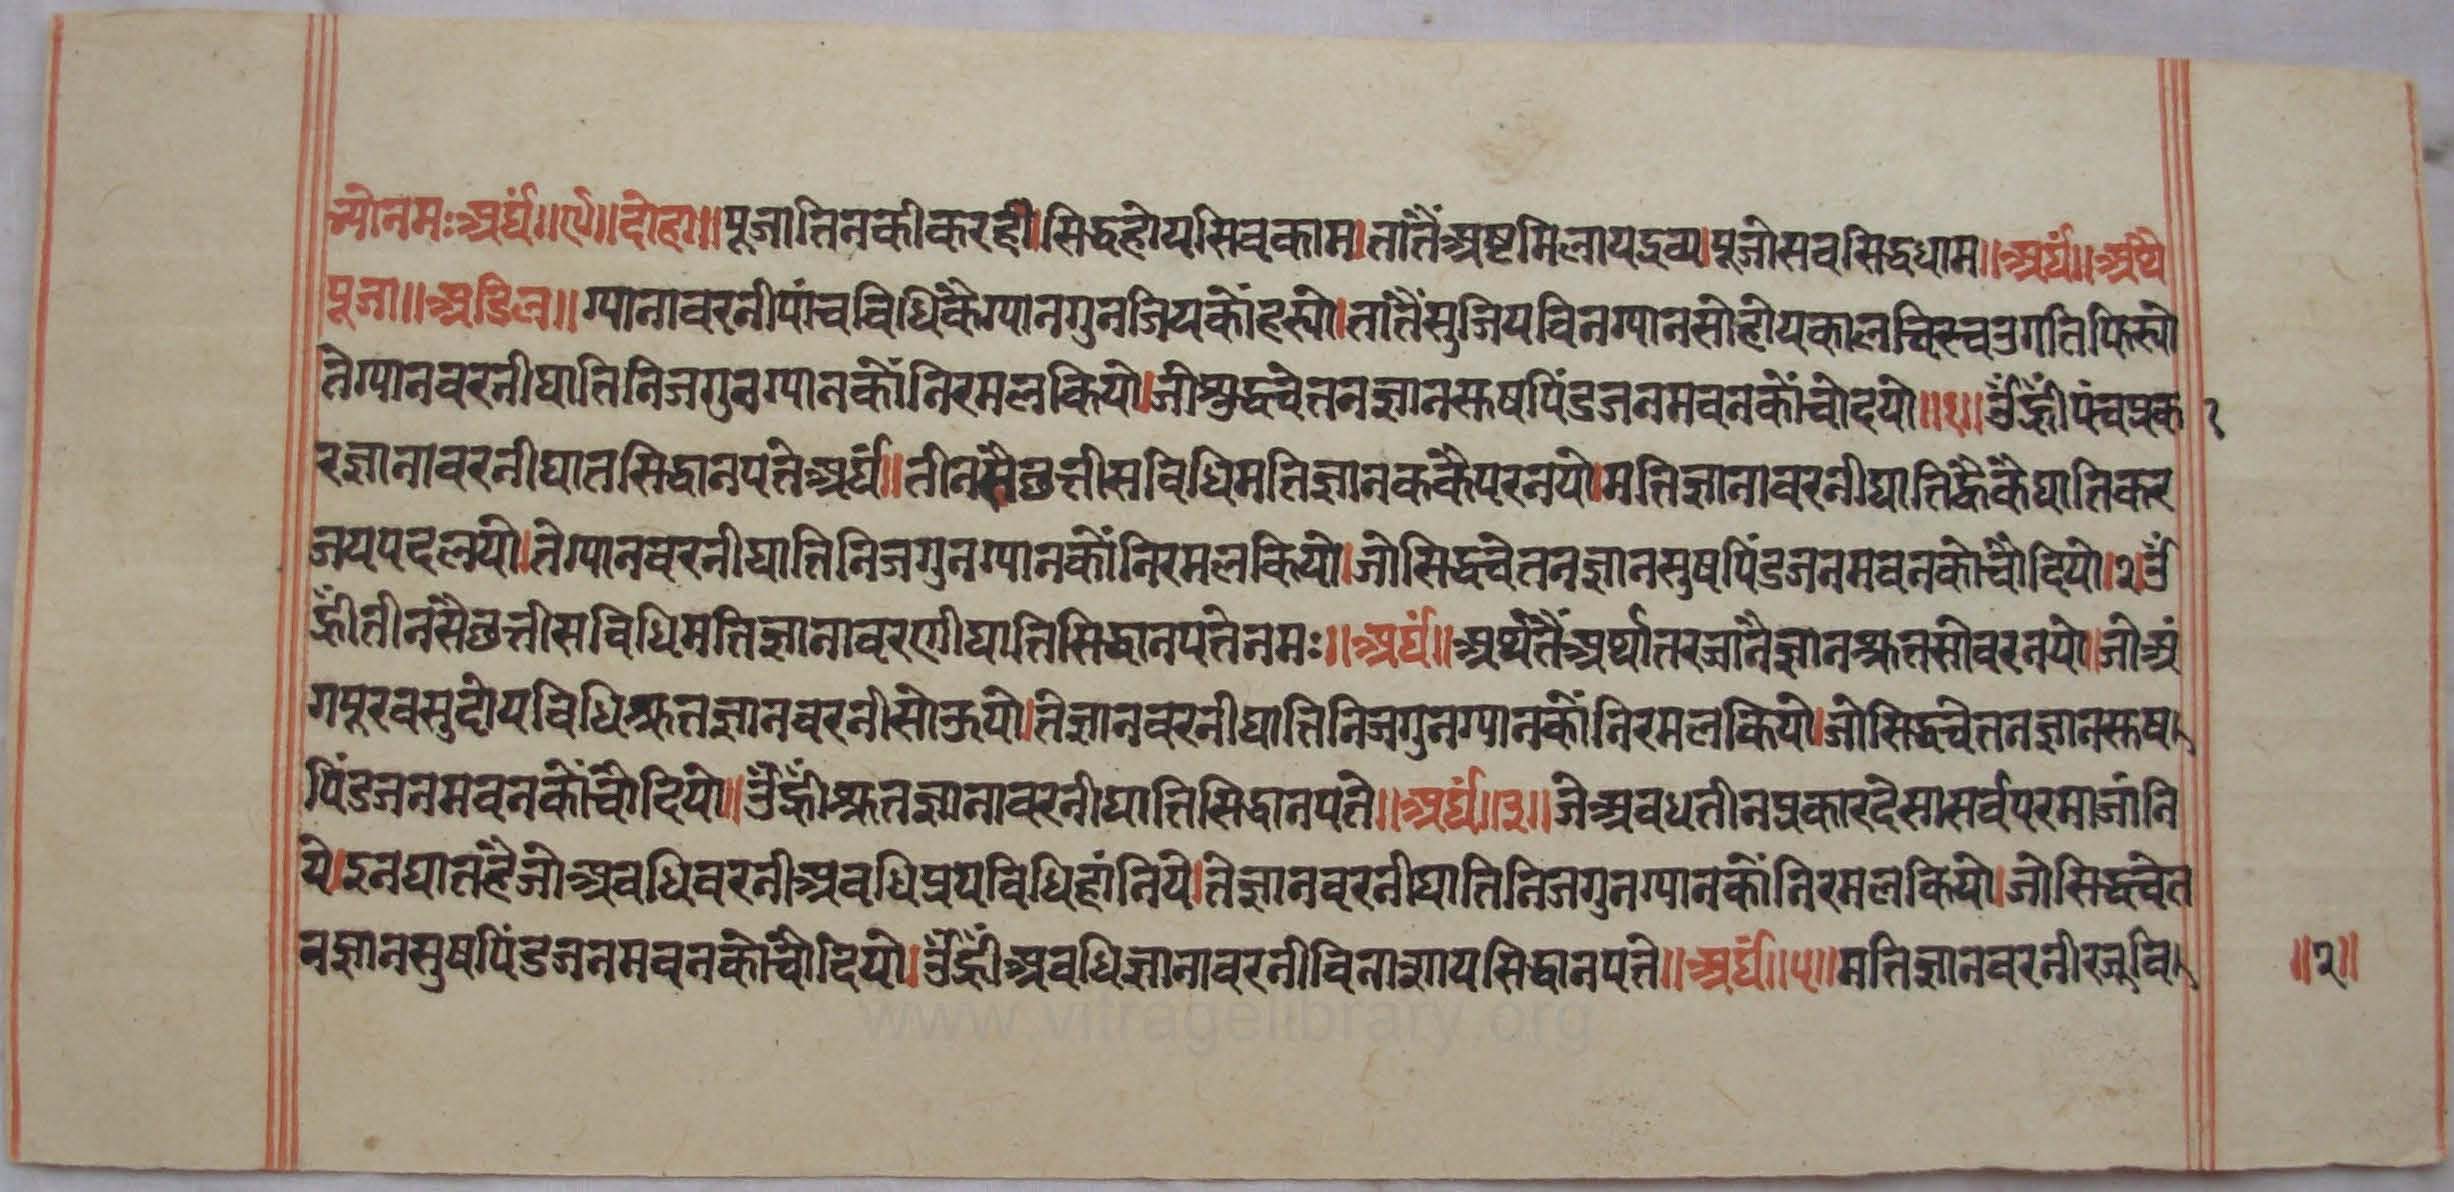 भ्योनमःअर्घं॥९॥दोहा॥पूजातिनकीकरहीं।सिद्धहोयसिवकाम।तांतैंअष्टमिलायद्रव्य।पूजौसवसिद्धधाम॥अर्घं॥अथ
पूजा॥अडिल॥ग्यानावरनीपांचविधिंकैग्यानगुनजियकौंहस्यो।तांतैंसुजियविनग्यानसोहोयकालचिरचउगतिफिस्यो
तेग्यानवरनीघातिनिजगुनग्यानकौंनिरमलकियो।जोशुद्धचेतनज्ञानसुषपिंडजनमवनकौंचोदयो॥१॥उँह्रींपंचप्रका
रज्ञानावरनीघातसिद्धानपतेअर्घं॥तीनसैछत्तीसविधिमतिज्ञानककैपरनयो।मतिज्ञानावरनीघातिह्वैकैघातिकर
जयपदलयो।तेग्यानवरनीघातिनिजगुनग्यानकौंनिरमलकियो।जोसिद्धचेतनज्ञानसुषपिंडजनमवनकोचौदियो।२।उँ
ह्रींतीनसैछत्तीसविधिमतिज्ञानावरणीघातिसिद्धानपतेनमः॥अर्घं॥अर्थतैंअर्थातरजानैज्ञानश्रुतसोवरनयो।जोअं
गपूरवसुदोयविधिश्रुतज्ञानवरनीसोक्रयो।तेज्ञानवरनीघातिनिजगुनग्यानकौंनिरमलकियो।जोसिद्धचेतनज्ञानसुष
पिंडजनमवनकौंचौदियो॥उँह्रींश्रुतज्ञानावरनीघातिसिद्धानपते॥अर्घं॥३॥जेअवधतीनप्रकारदेसासर्वपरमाजांनि
ये।इनघातहैजोअवधिवरनीअवधिप्रयविधिहांनिये।तेज्ञानवरनीघातिनिजगुनग्यानकौंनिरमलकियो।जोसिद्धचेत
नज्ञानसुषपिंडजनमवनकोचौदियो।उँह्रींअवधिज्ञानावरनीविनाशायसिद्धानपते॥अर्घं॥५॥मतिज्ञानवरनीरजुवि
॥२॥
www.vitragelibrary.org